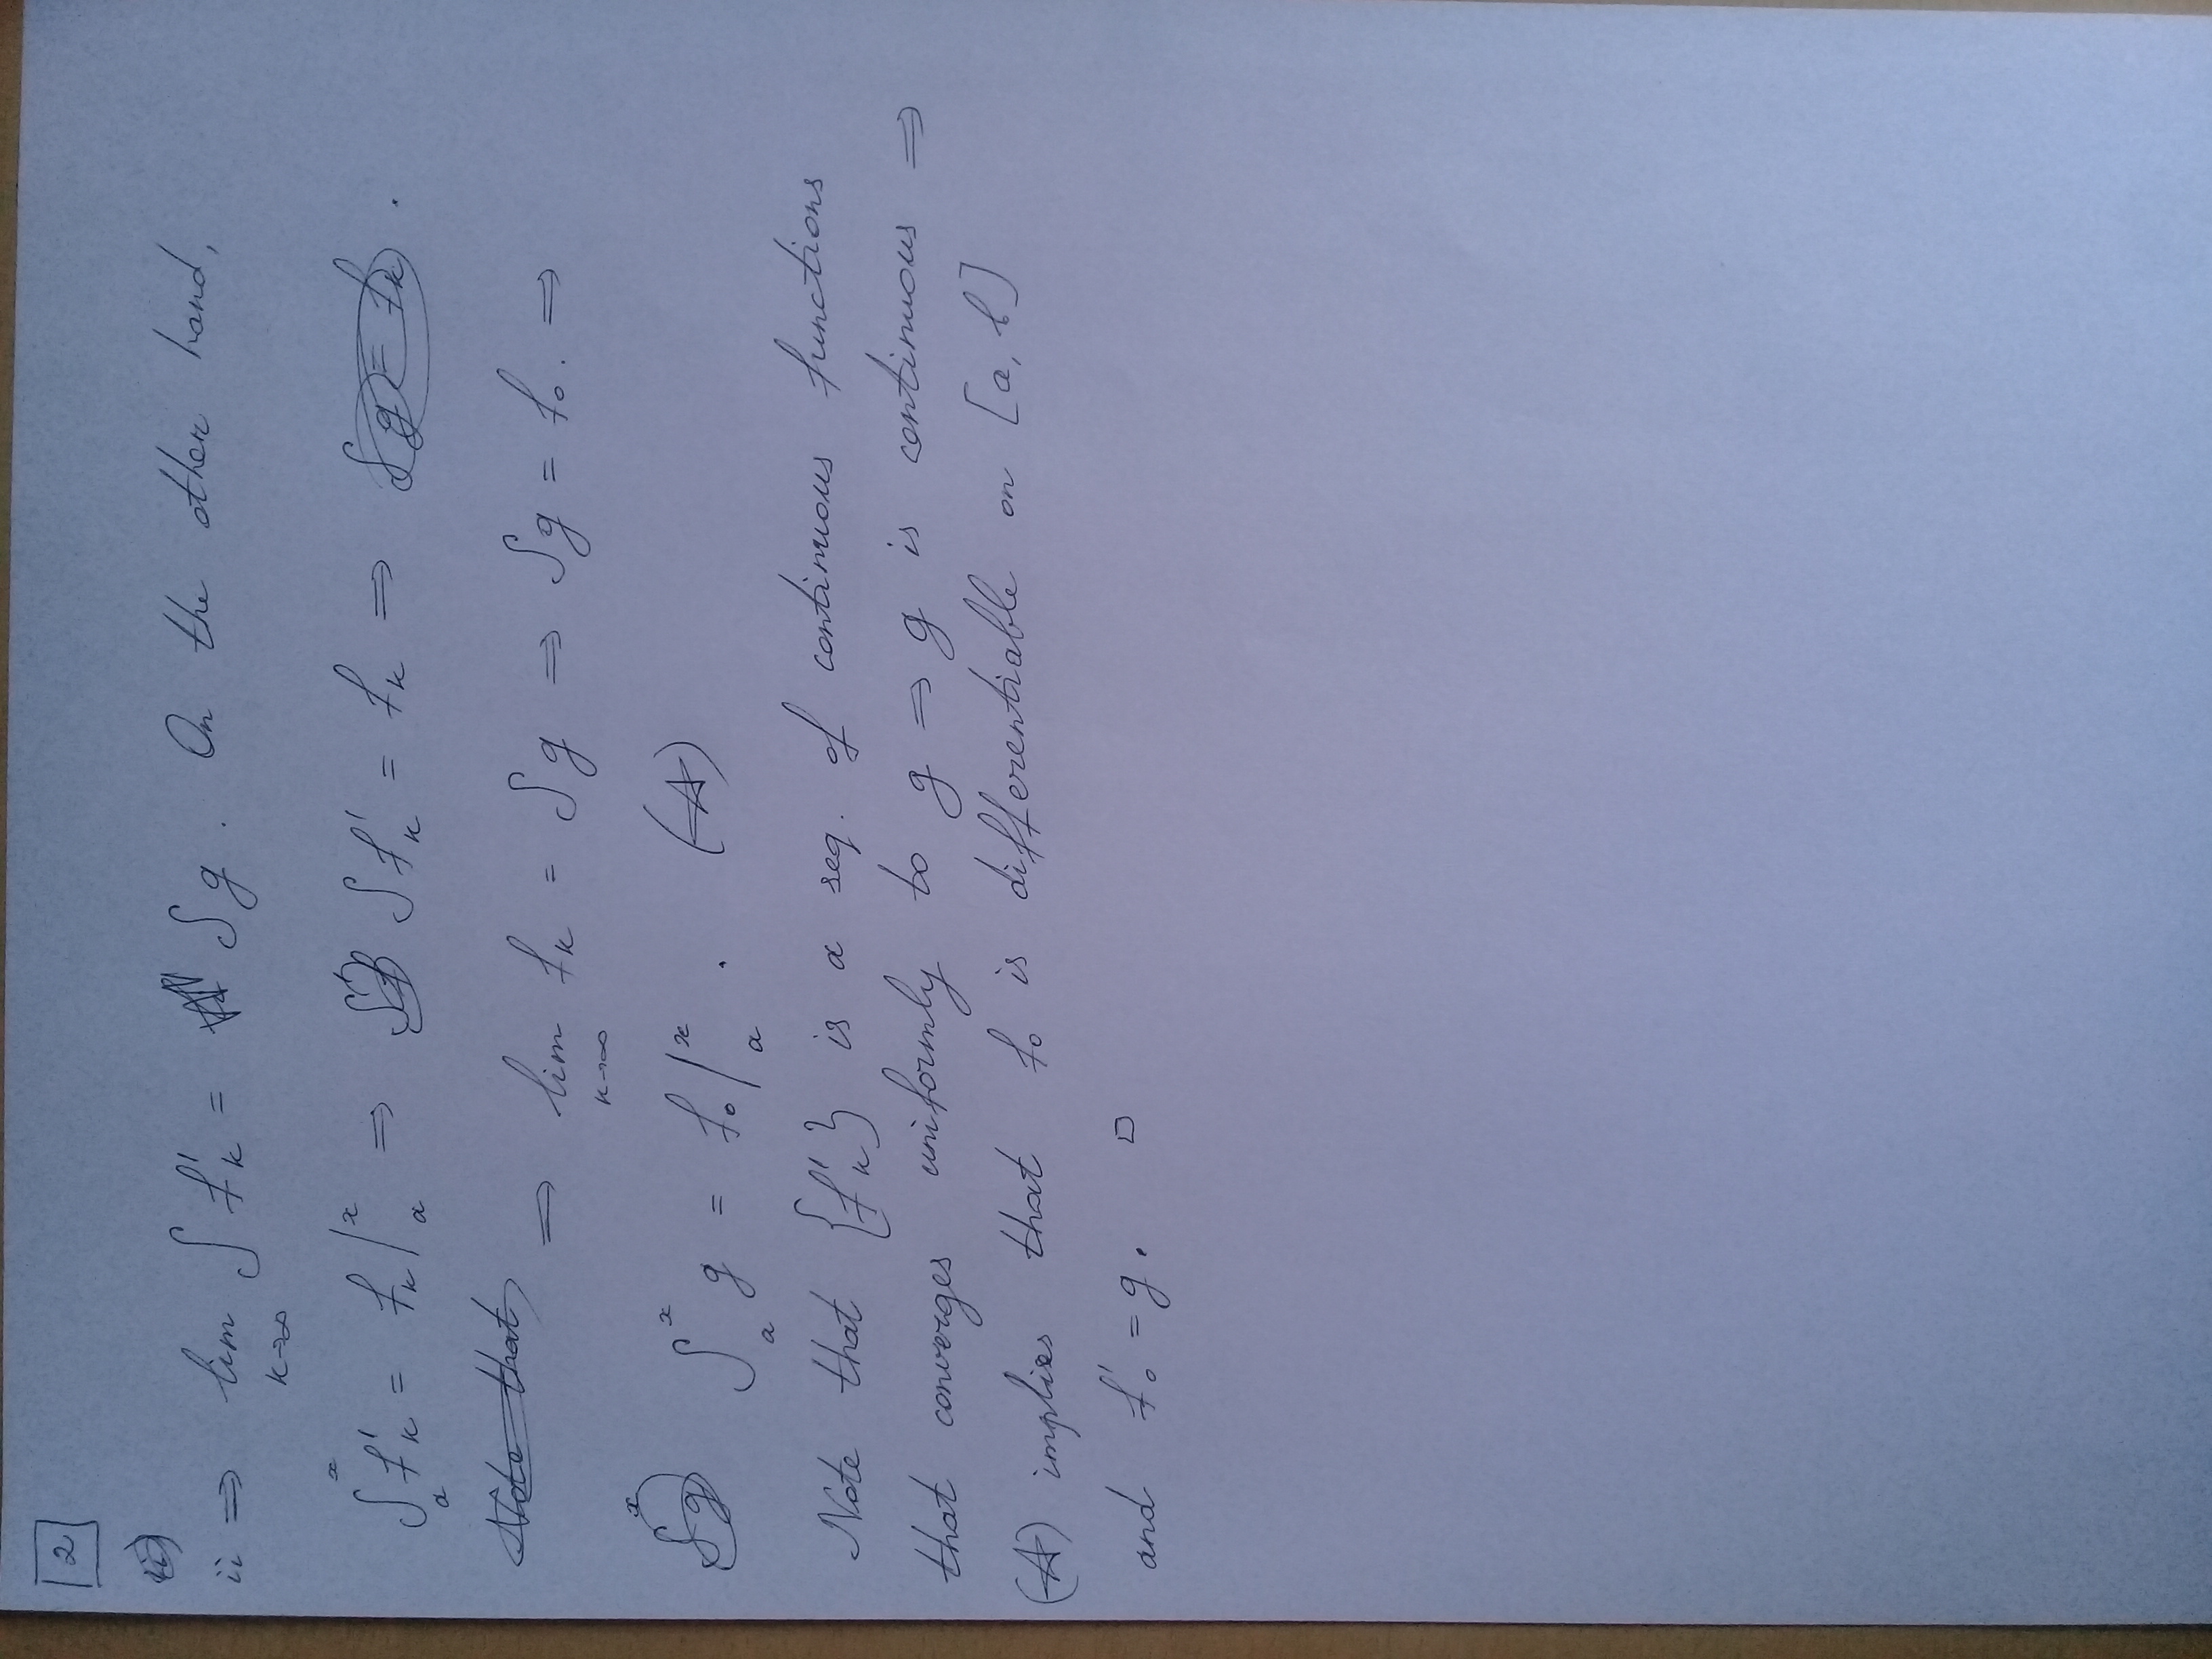 2
ii ⇒ lim k→∞ ∫ f'k = ∫ g . On the other hand,
∫ₐˣ f'k = fk |ₐˣ ⇒ ∫ f'k = fk ⇒ ∫ g = fk .
Note that
⇒ lim k→∞ fk = ∫ g ⇒ ∫ g = f₀ . ⇒
∫ˣ g ∫ₐˣ g = f₀ |ₐˣ . (☆)
Note that {f'k} is a seq. of continuous functions
that converges uniformly to g ⇒ g is continuous ⇒
(☆) implies that f₀ is differentiable on [a, b]
and f'₀ = g . □